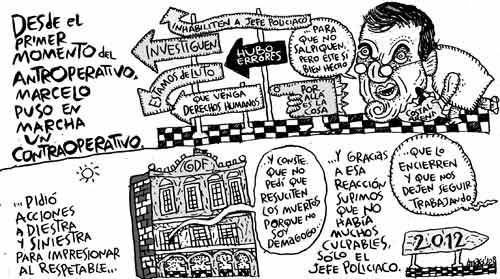 DESDE EL
PRIMER
MOMENTO DEL
ANTROPERATIVO,
MARCELO
PUSO EN
MARCHA
UN
CONTRAOPERATIVO.
INHABILITEN A JEFE POLICIACO
INVESTIGUEN
HUBO
ERRORES
ESTAMOS DE LUTO
QUE VENGA
DERECHOS HUMANOS
POR
AHÍ MALA
ES LA
COSA
...PARA
QUE NO
SALPIQUEN,
PERO ÉSTE SÍ
BIEN HECHO
...PIDIÓ
ACCIONES
A DIESTRA
Y SINIESTRA
PARA IMPRESIONAR
AL RESPETABLE...
GDF
...Y CONSTE
QUE NO
PEDÍ QUE
RESUCITEN
LOS MUERTOS
PORQUE NO
SOY
DEMAGOGO.
...Y GRACIAS
A ESA
REACCIÓN
SUPIMOS
QUE NO
HABÍA
MUCHOS
CULPABLES,
SÓLO EL
JEFE POLICIACO.
...QUE LO
ENCIERREN
Y QUE NOS
DEJEN SEGUIR
TRABAJANDO
2012